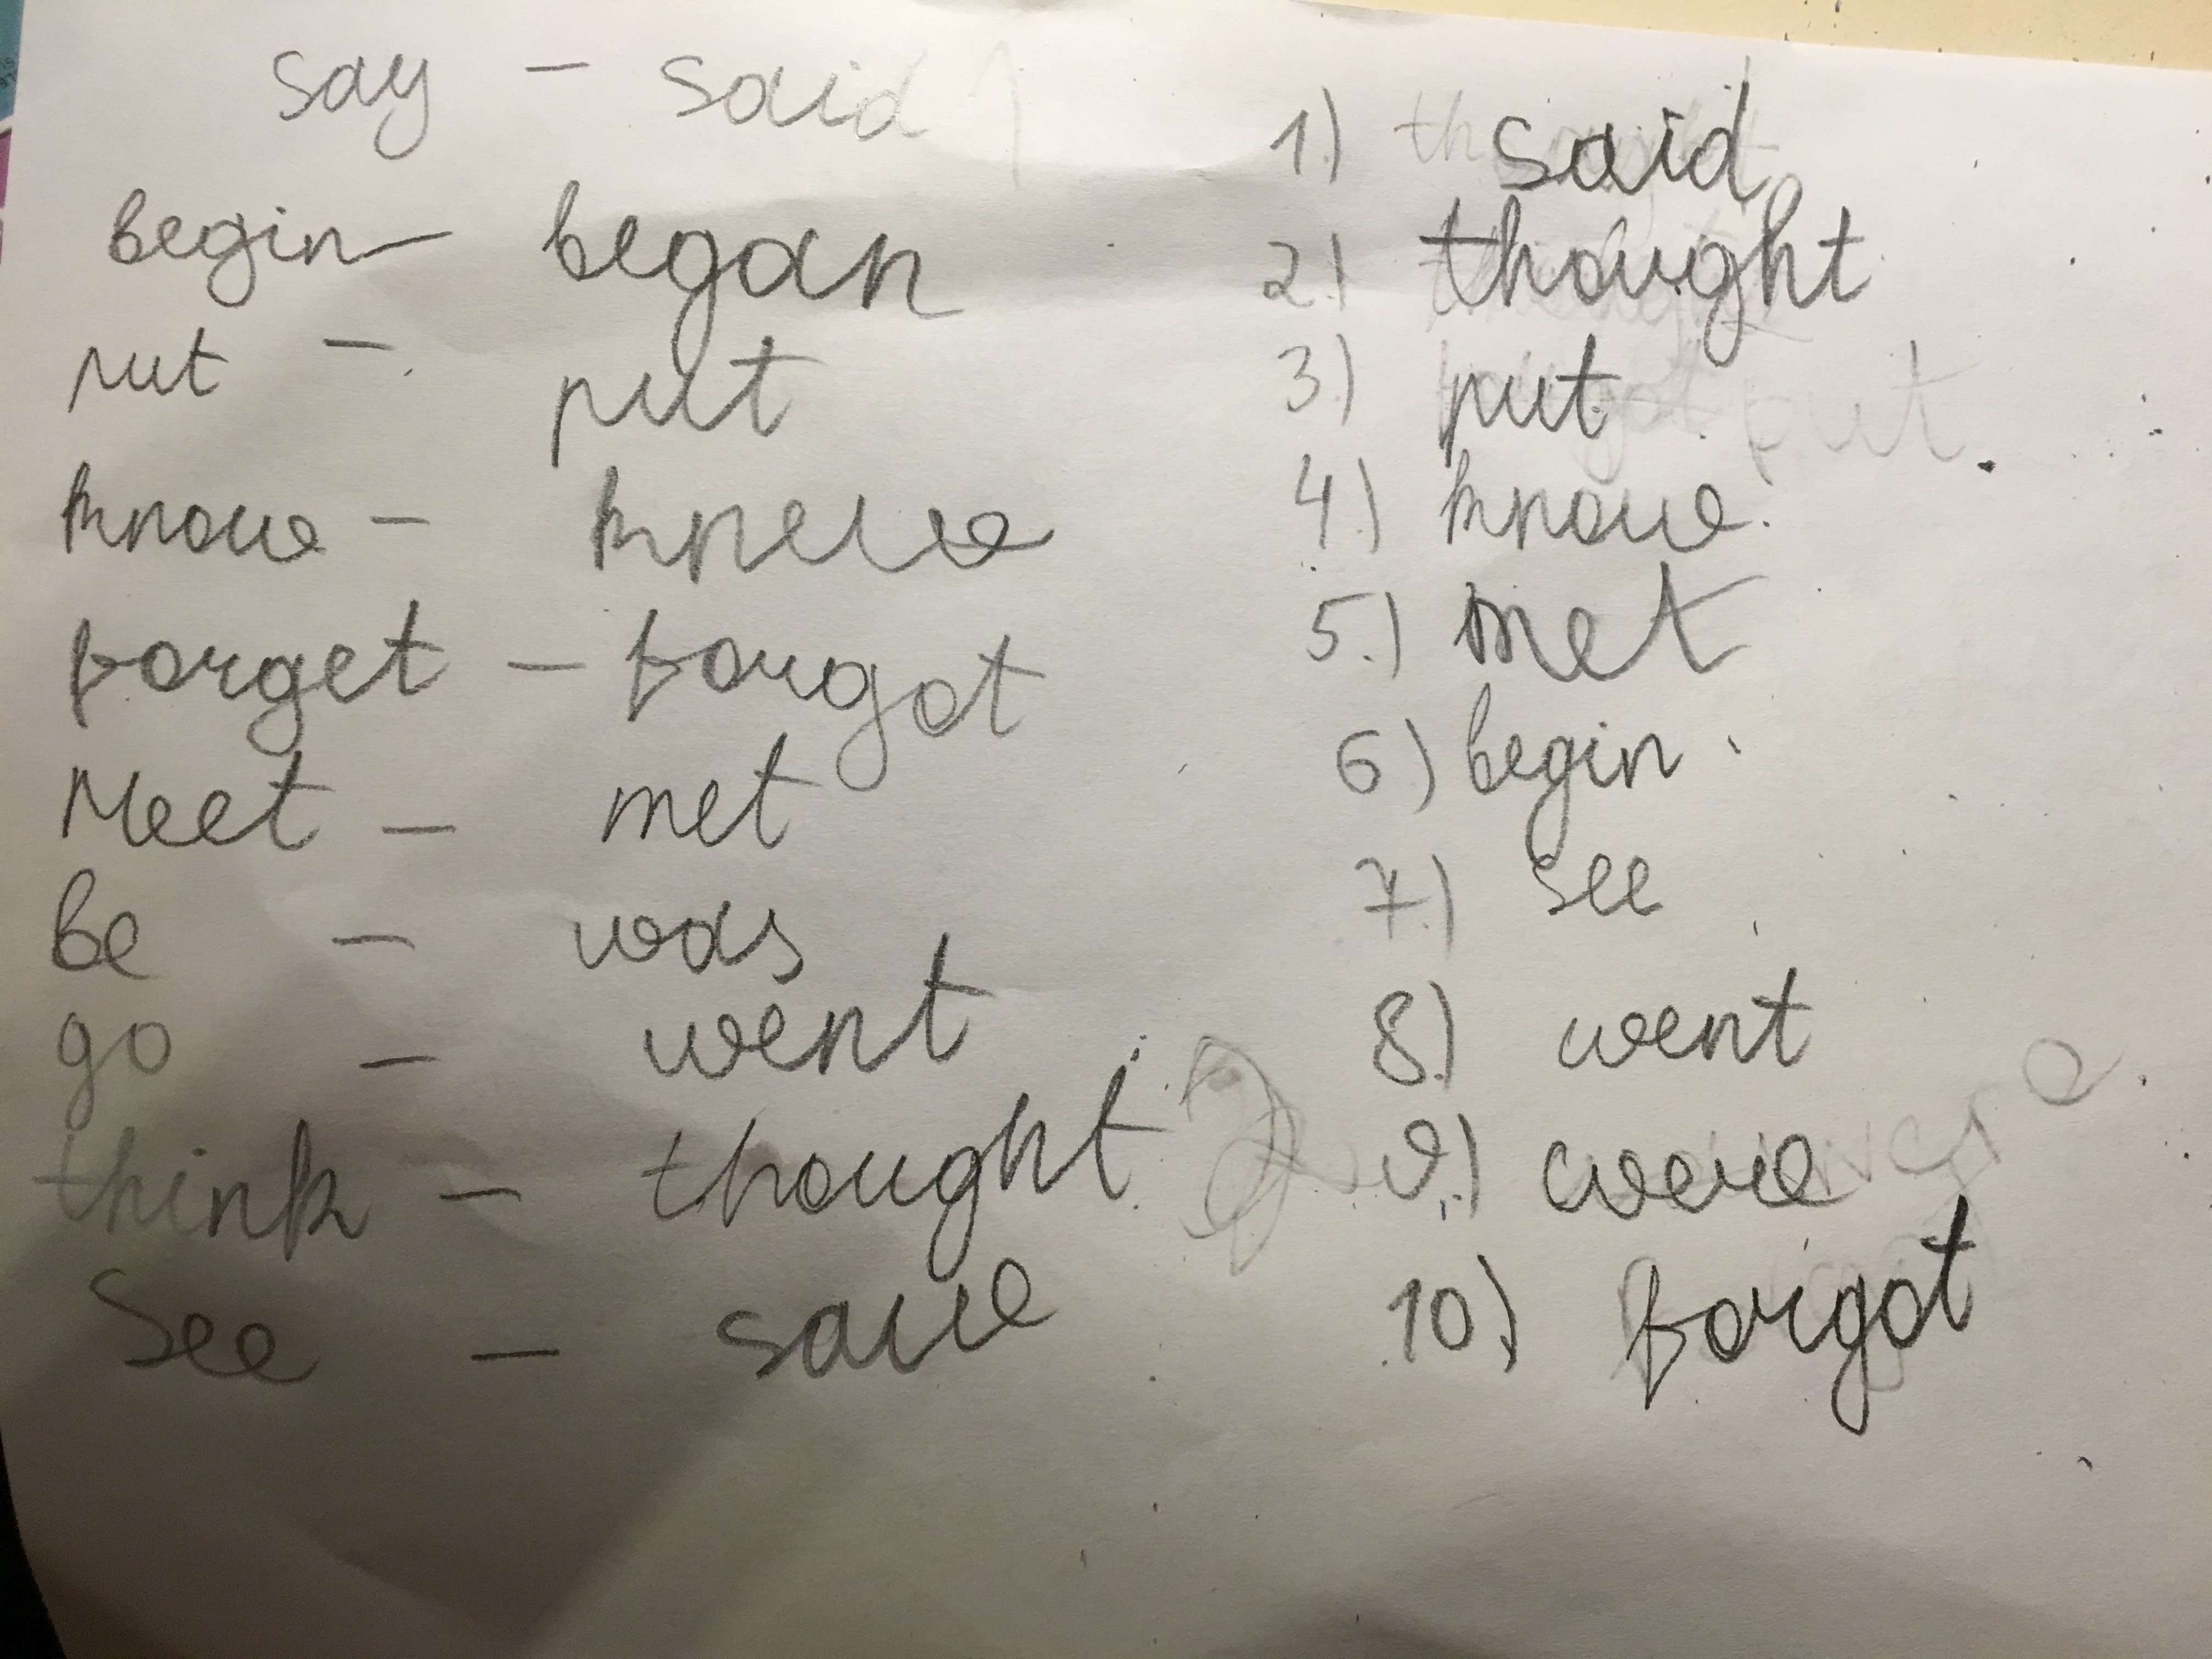 say - said
begin - began
put - put
know - knew
forget - forgot
Meet - met
be - was
go - went
think - thought
See - saw
1.) said
2.) thought
3.) put
4.) know
5.) met
6.) begin
7.) see
8.) went
9.) were
10.) forgot